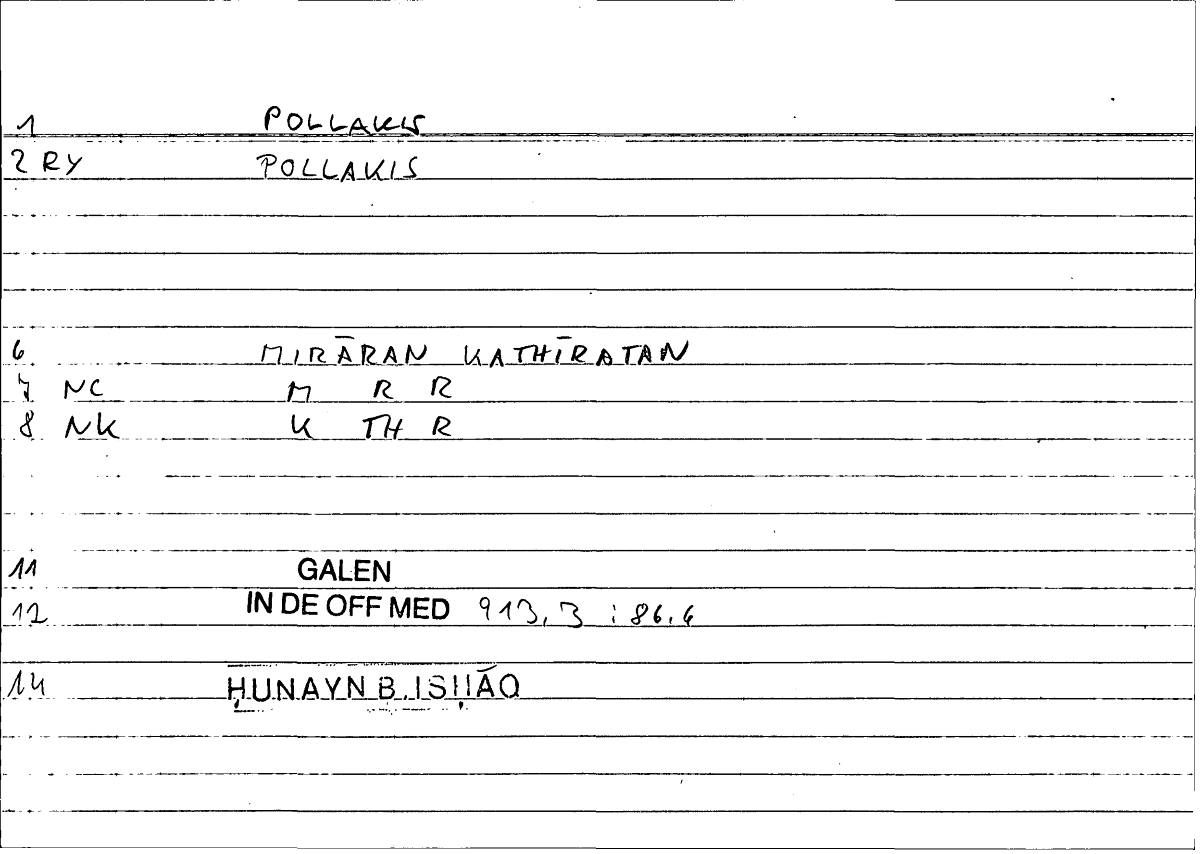 1 POLLAKIS
2 RY POLLAKIS
6 MIRĀRAN KATHĪRATAN
7 NC M R R
8 NK K TH R
11 GALEN
12 IN DE OFF MED 913,3 : 86.6
14 ḤUNAYN B. ISḤĀQ